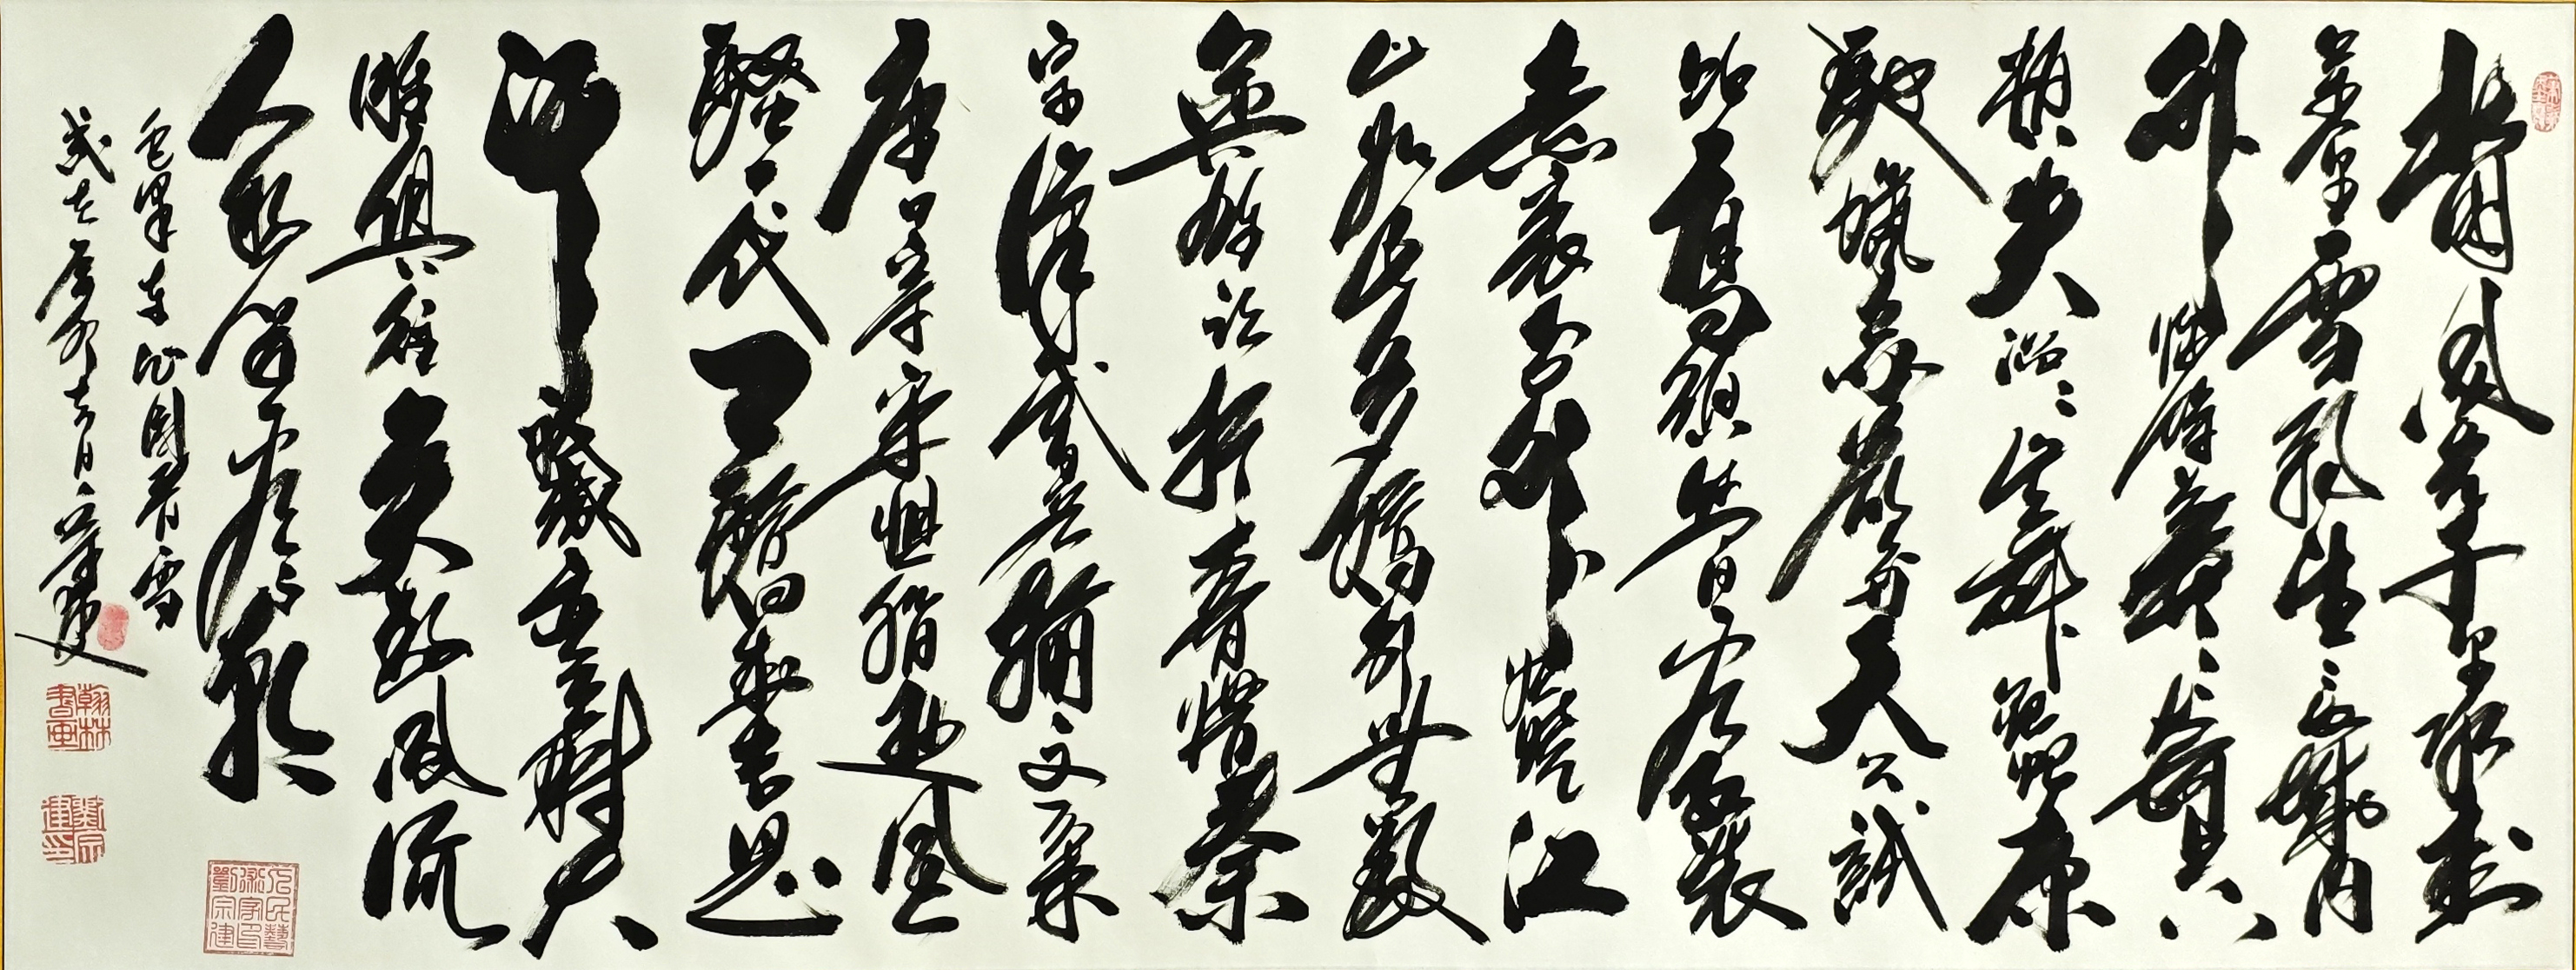 北國風光千里冰封
萬里雪飘望長城内
外惟餘莽莽大河上下
頓失滔滔山舞銀蛇原
馳蠟象欲與天公試
比高須晴日看紅裝
素裹分外妖嬈江
山如此多嬌引無數
英雄競折腰惜秦
皇漢武略輸文采
唐宗宋祖稍遜風
騷一代天驕成吉思
汗只識彎弓射大
雕俱往矣數風流
人物還看今朝
毛澤東沁園春雪
歲在癸卯
翰林書画
劉宗建印